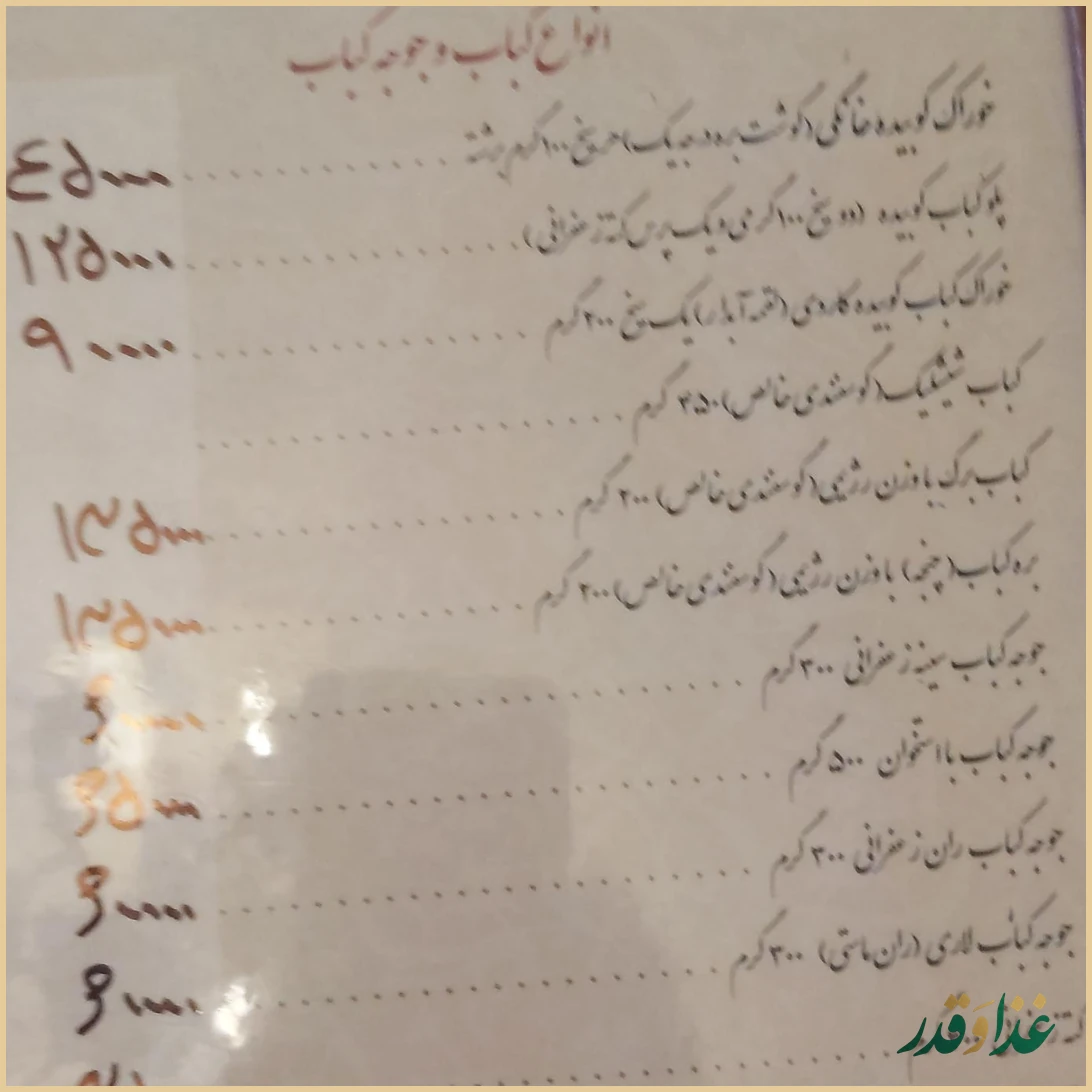 انواع کباب و جوجه کباب
خوراک کوبیده خانگی (گوشت بره درجه یک) هر سیخ ۱۰۰ گرم برشته ........ ۴۵۰۰۰
پلو کباب کوبیده (دو سیخ ۱۰۰ گرمی و یک پرس کته زعفرانی) ........ ۱۲۵۰۰۰
خوراک کباب کوبیده کاردی (لقمه آبدار) یک سیخ ۲۰۰ گرم ........ ۹۰۰۰۰
کباب شیشلیک (گوسفندی خالص) ۴۵۰ گرم ........
کباب برگ با وزن رژیمی (گوسفندی خالص) ۲۰۰ گرم ........ ۱۳۵۰۰۰
بره کباب (چنجه) با وزن رژیمی (گوسفندی خالص) ۲۰۰ گرم ........ ۱۳۵۰۰۰
جوجه کباب سینه زعفرانی ۳۰۰ گرم ........ ۶۰۰۰۰
جوجه کباب با استخوان ۵۰۰ گرم ........ ۶۵۰۰۰
جوجه کباب ران زعفرانی ۳۰۰ گرم ........ ۶۰۰۰۰
جوجه کباب لاری (ران ماستی) ۳۰۰ گرم ........ ۶۰۰۰۰
کته
غذا و قدر